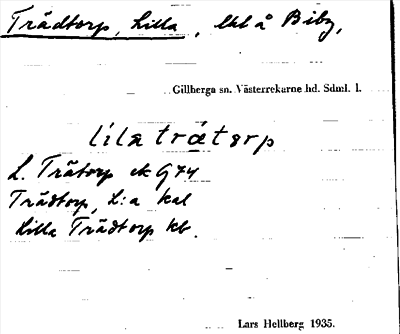 Trädtorp, Lilla, lht å Biby,
Gillberga sn. Västerrekarne hd. Sdml. l.
lila trätorp
L. Trätorp ek G74
Trädtorp, L:a kal
Lilla Trädtorp kb.
Lars Hellberg 1935.